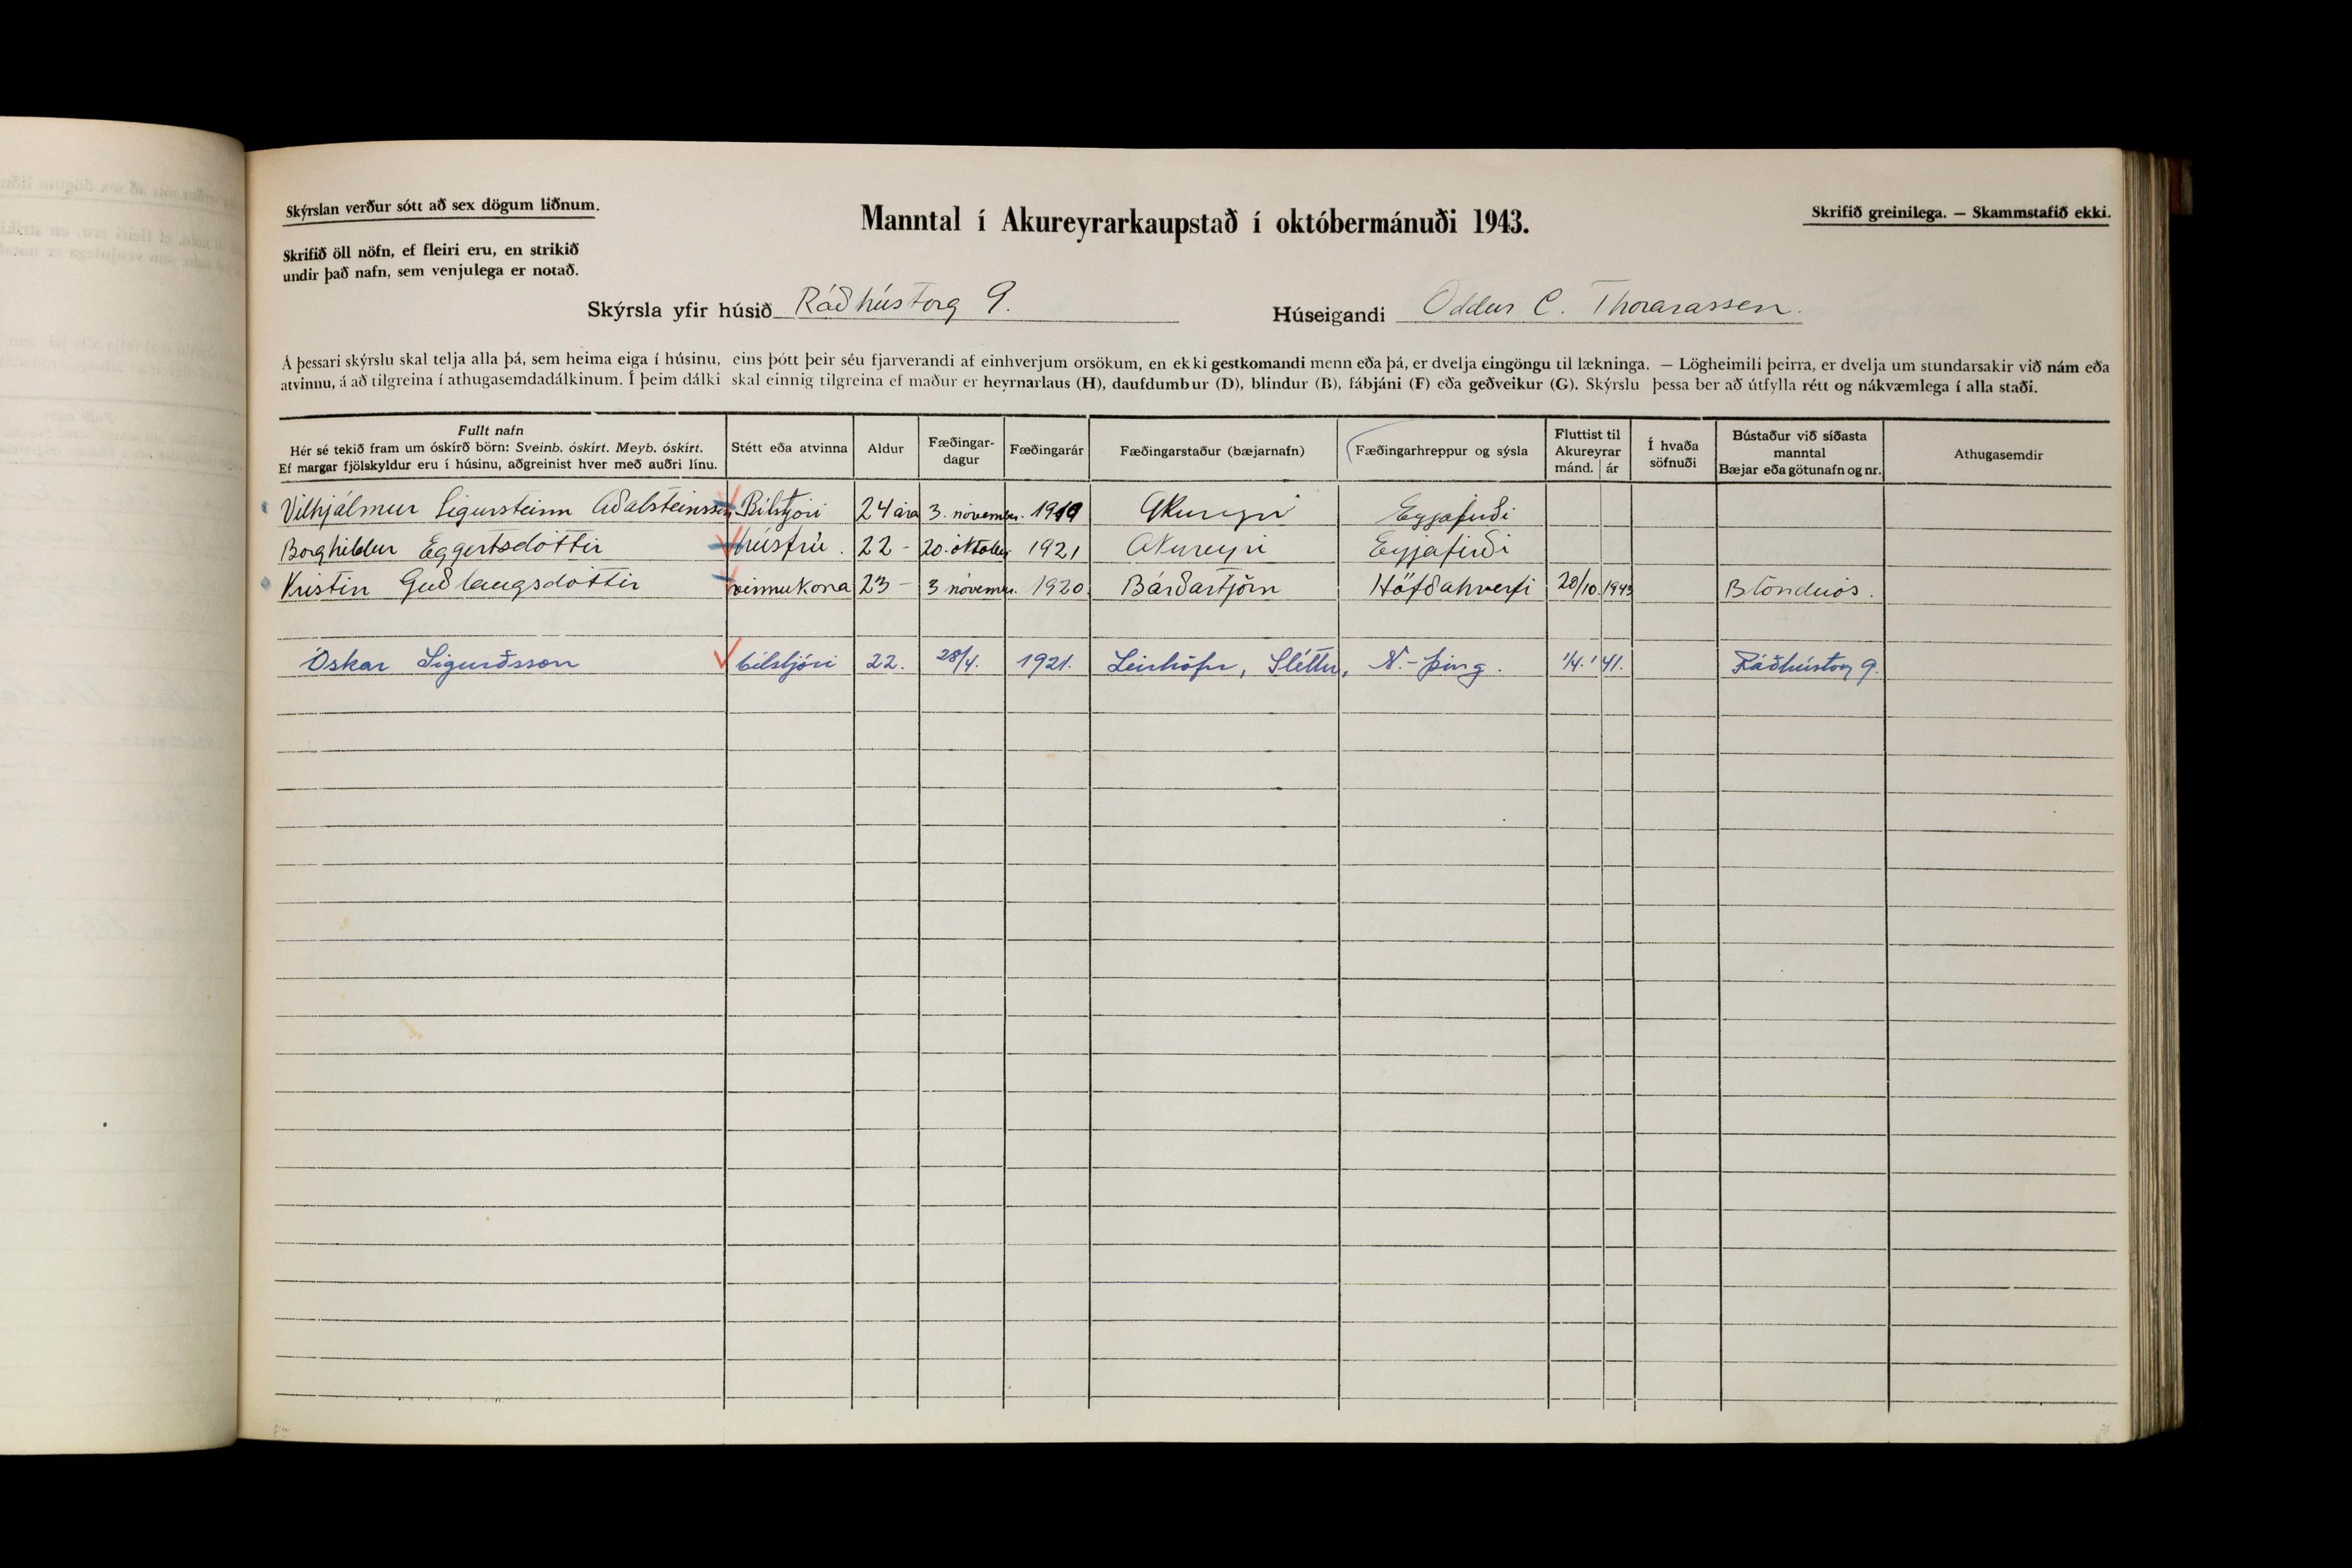 Skýrslan verður sótt að sex dögum liðnum.
Manntal í Akureyrarkaupstað í októbermánuði 1943.
Skrifið greinilega. — Skammstafið ekki.
Skrifið öll nöfn, ef fleiri eru, en strikið
undir það nafn, sem venjulega er notað.
Skýrsla yfir húsið Ráðhústorg 9. Húseigandi Oddur C. Thorarassen.
Á þessari skýrslu skal telja alla þá, sem heima eiga í húsinu, eins þótt þeir séu fjarverandi af einhverjum orsökum, en ekki gestkomandi menn eða þá, er dvelja eingöngu til lækninga. — Lögheimili þeirra, er dvelja um stundarsakir við nám eða
atvinnu, á að tilgreina í athugasemdadálkinum. Í þeim dálki skal einnig tilgreina ef maður er heyrnarlaus (H), daufdumbur (D), blindur (B), fábjáni (F) eða geðveikur (G). Skýrslu þessa ber að útfylla rétt og nákvæmlega í alla staði.
Fullt nafn
Hér sé tekið fram um óskírð börn: Sveinb. óskírt. Meyb. óskírt.
Ef margar fjölskyldur eru í húsinu, aðgreinist hver með auðri línu.
Stétt eða atvinna
Aldur
Fæðingar-
dagur
Fæðingarár
Fæðingarstaður (bæjarnafn)
Fæðingarhreppur og sýsla
Fluttist til
Akureyrar
mánd. ár
Í hvaða
söfnuði
Bústaður við síðasta
manntal
Bæjar eða götunafn og nr.
Athugasemdir
Vilhjálmur Sigursteinn Aðalsteinsson Bílstjóri 24 ára 3. november. 1919 Akureyri Eyjafirði
Borghildur Eggertsdóttir húsfrú. 22 - 20. oktober 1921 Akureyri Eyjafirði
Kristín Guðlaugsdóttir vinnukona 23 - 3 november. 1920 Bárðartjörn Höfðahverfi 20/10. 1943 Blönduós.
Óskar Sigurðsson bílstjóri 22. 28/4. 1921. Leirhöfn, Sléttu, N.-Þing. 1/4. '41. Ráðhústorg 9.